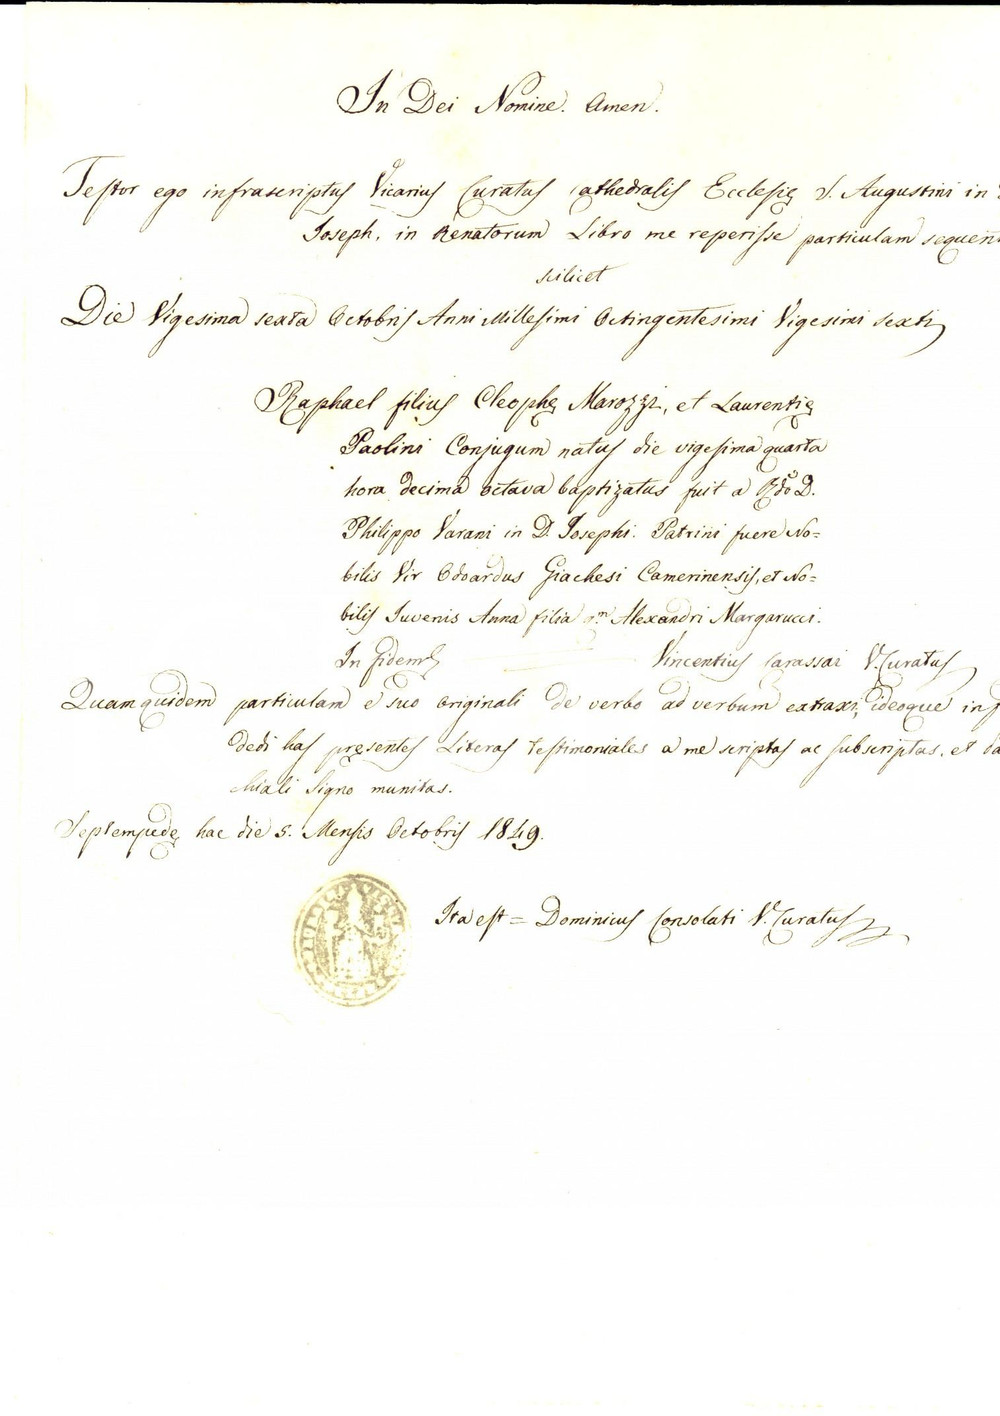 In Dei Nomine. Amen.
Testor ego infrascriptus Vicarius Curatus Cathedralis Ecclesię S. Augustini in
Joseph, in Renatorum Libro me reperisse particulam sequen
scilicet
Die Vigesima sexta Octobris Anni Millesimi Octingentesimi Vigesimi sexti
Raphael filius Cleophę Marozzi, et Laurentię
Paolini Conjugum natus die vigesima quarta
hora decima octava baptizatus fuit a Rdo D.
Philippo Varani in D. Josephi. Patrini fuere No=
bilis Vir Odoardus Giachesi Camerinensis, et No=
bilis Juvenis Anna filia qm Alexandri Margarucci.
In fidem Vincentius Carassai V. Curatus
Quamquidem particulam e suo originali de verbo ad verbum extraxi, ideoque in
dedi has pręsentes Literas testimoniales a me scriptas ac subscriptas, et
chiali Signo munitas.
Septempedę hac die 5. Mensis Octobris 1849.
Ita est = Dominicus Consolati V. Curatus